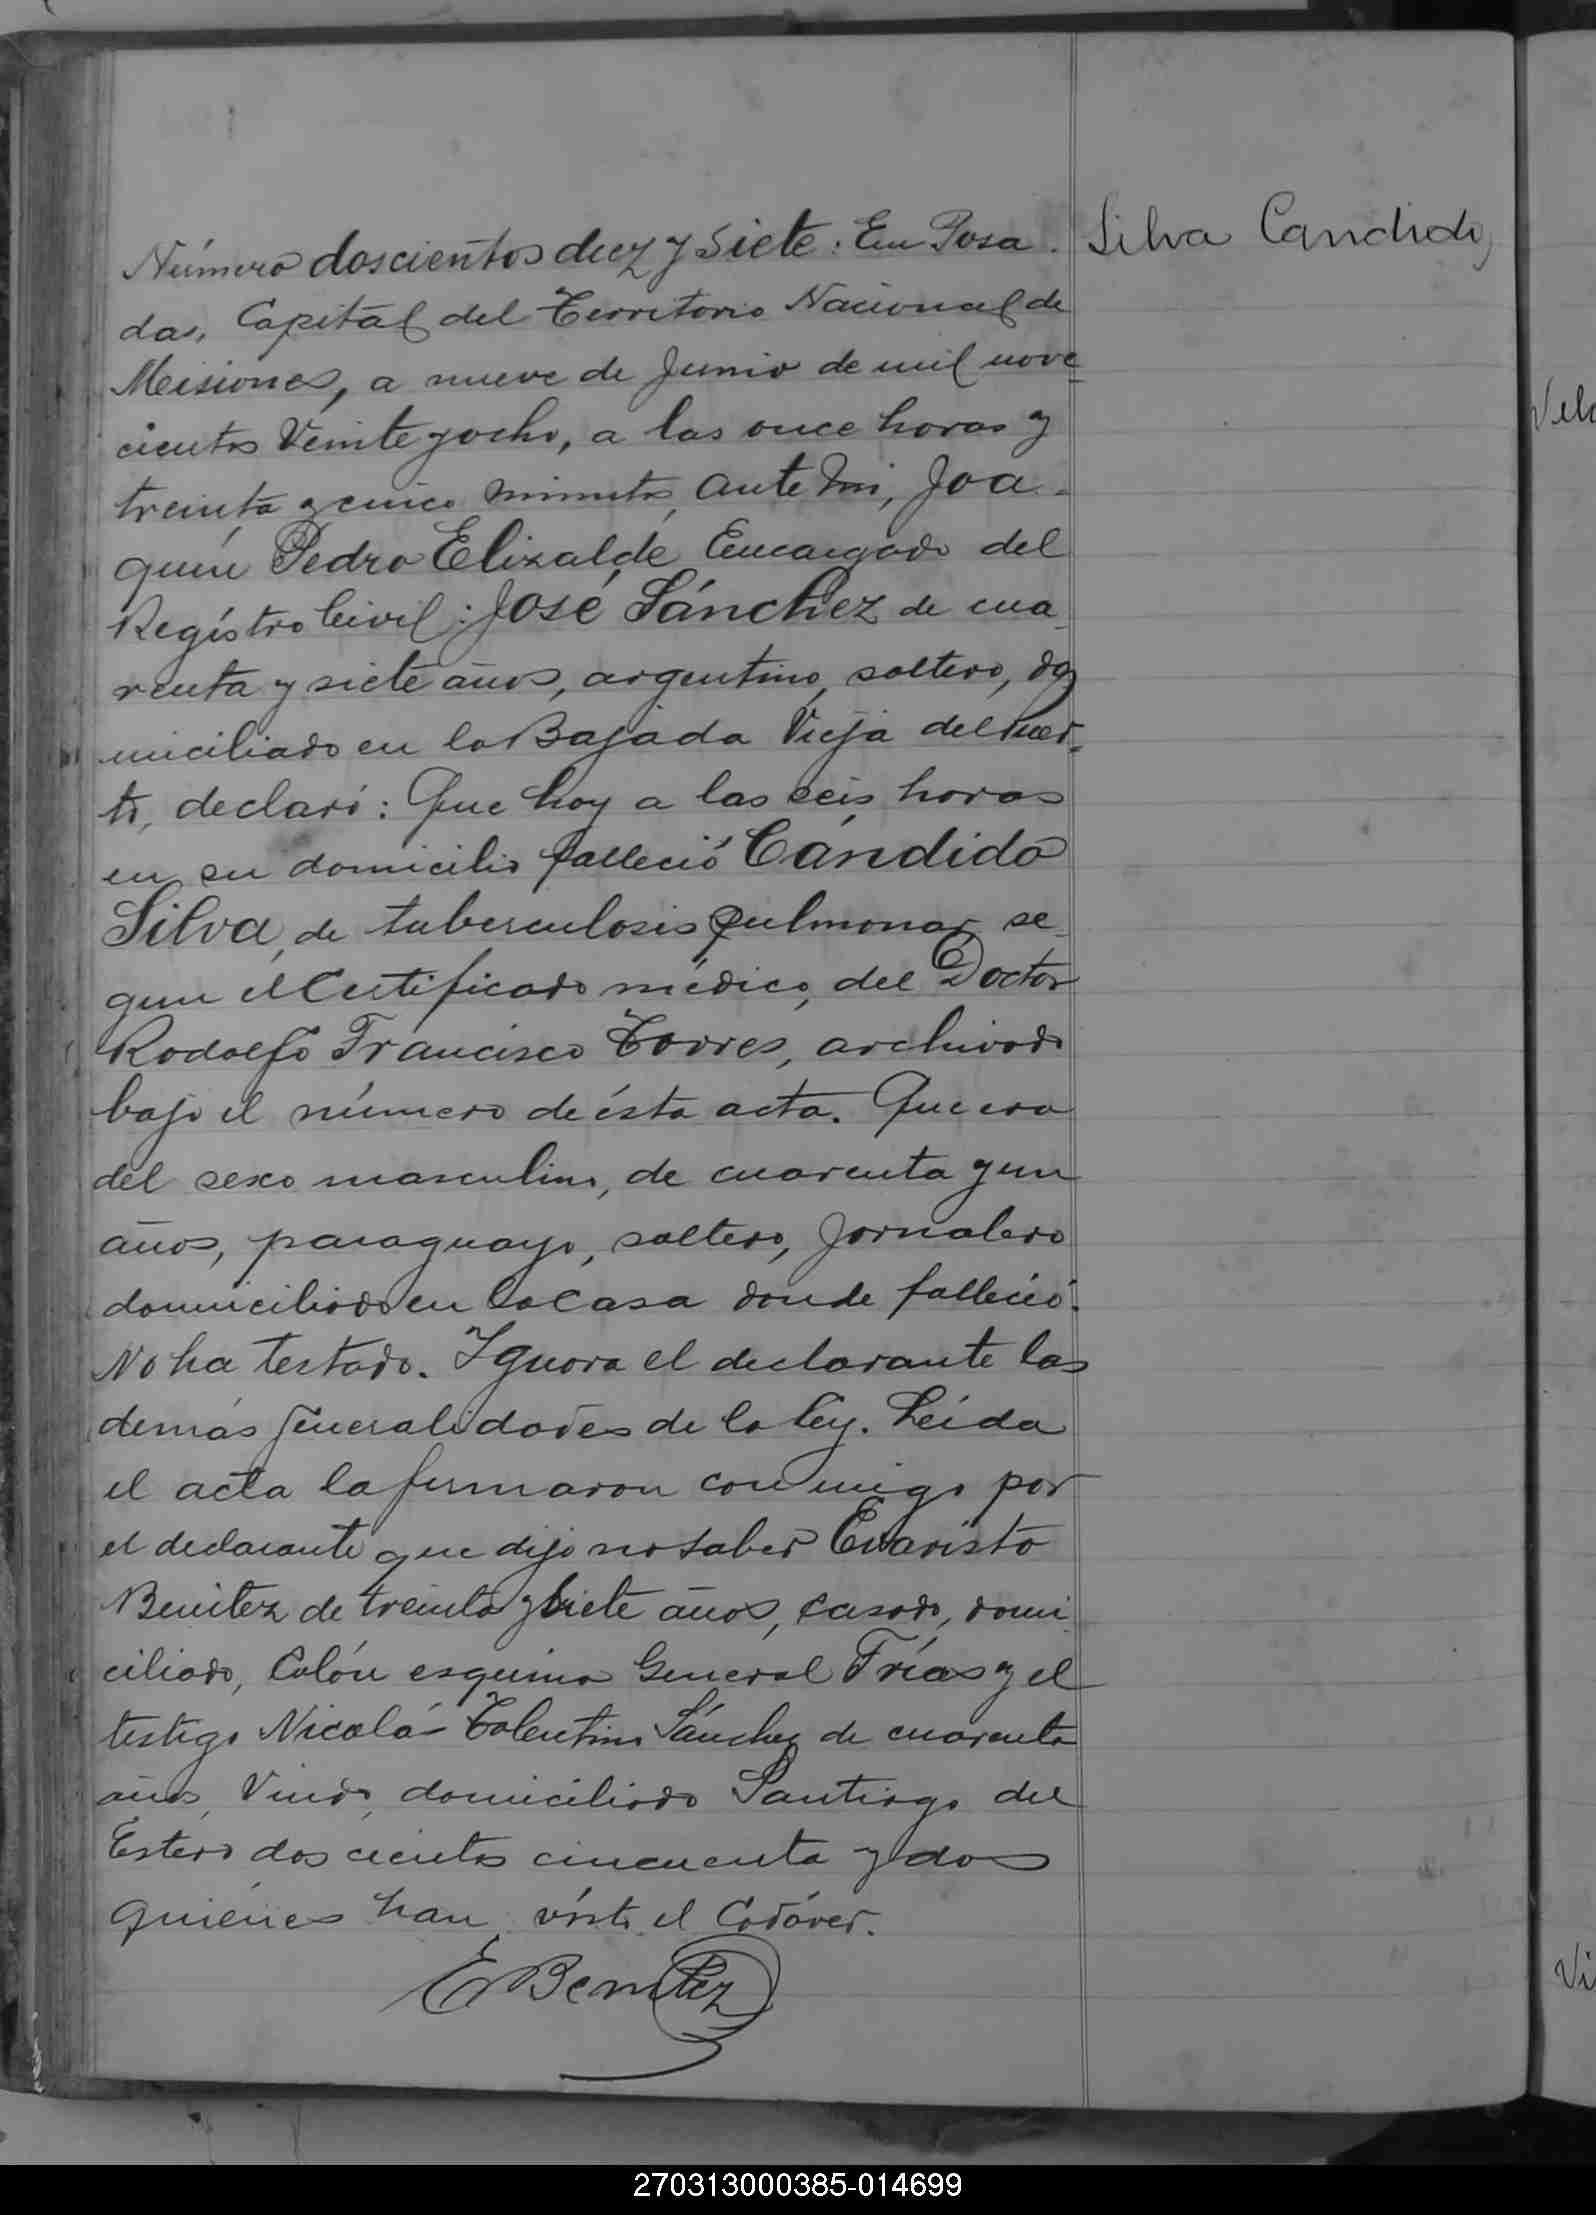 Silva Candido
Número doscientos diez y siete: En Posa-
das, Capital del Territorio Nacional de
Misiones, a nueve de Junio de mil nove-
cientos Veinte y ocho, a las once horas y
treinta y cinco minutos, ante mi, Joa-
quin Pedro Elizalde, Encargado del
Registro Civil: José Sánchez de cua-
renta y siete años, argentino, soltero, do-
miciliado en la Bajada Vieja del Puer-
to, declaró: Que hoy a las seis horas
en su domicilio falleció Cándido
Silva, de tuberculosis pulmonar, se-
gun el Certificado médico, del Doctor
Rodolfo Francisco Torres, archivado
bajo el número de ésta acta. Que era
del sexo masculino, de cuarenta y un
años, paraguayo, soltero, Jornalero
domiciliado en la Casa donde falleció.
No ha testado. Ignora el declarante las
demás generalidades de la ley. Leída
el acta la firmaron conmigo por
el declarante que dijo no saber Evaristo
Benitez de treinta y siete años, casado, domi-
ciliado, Colón esquina General Frías y el
testigo Nicolás Tolentino Sánchez de cuarenta
años, Viudo, domiciliado Santiago del
Estero doscientos cincuenta y dos
quiénes han visto el Cadáver.
E Benitez
Vi
270313000385-014699